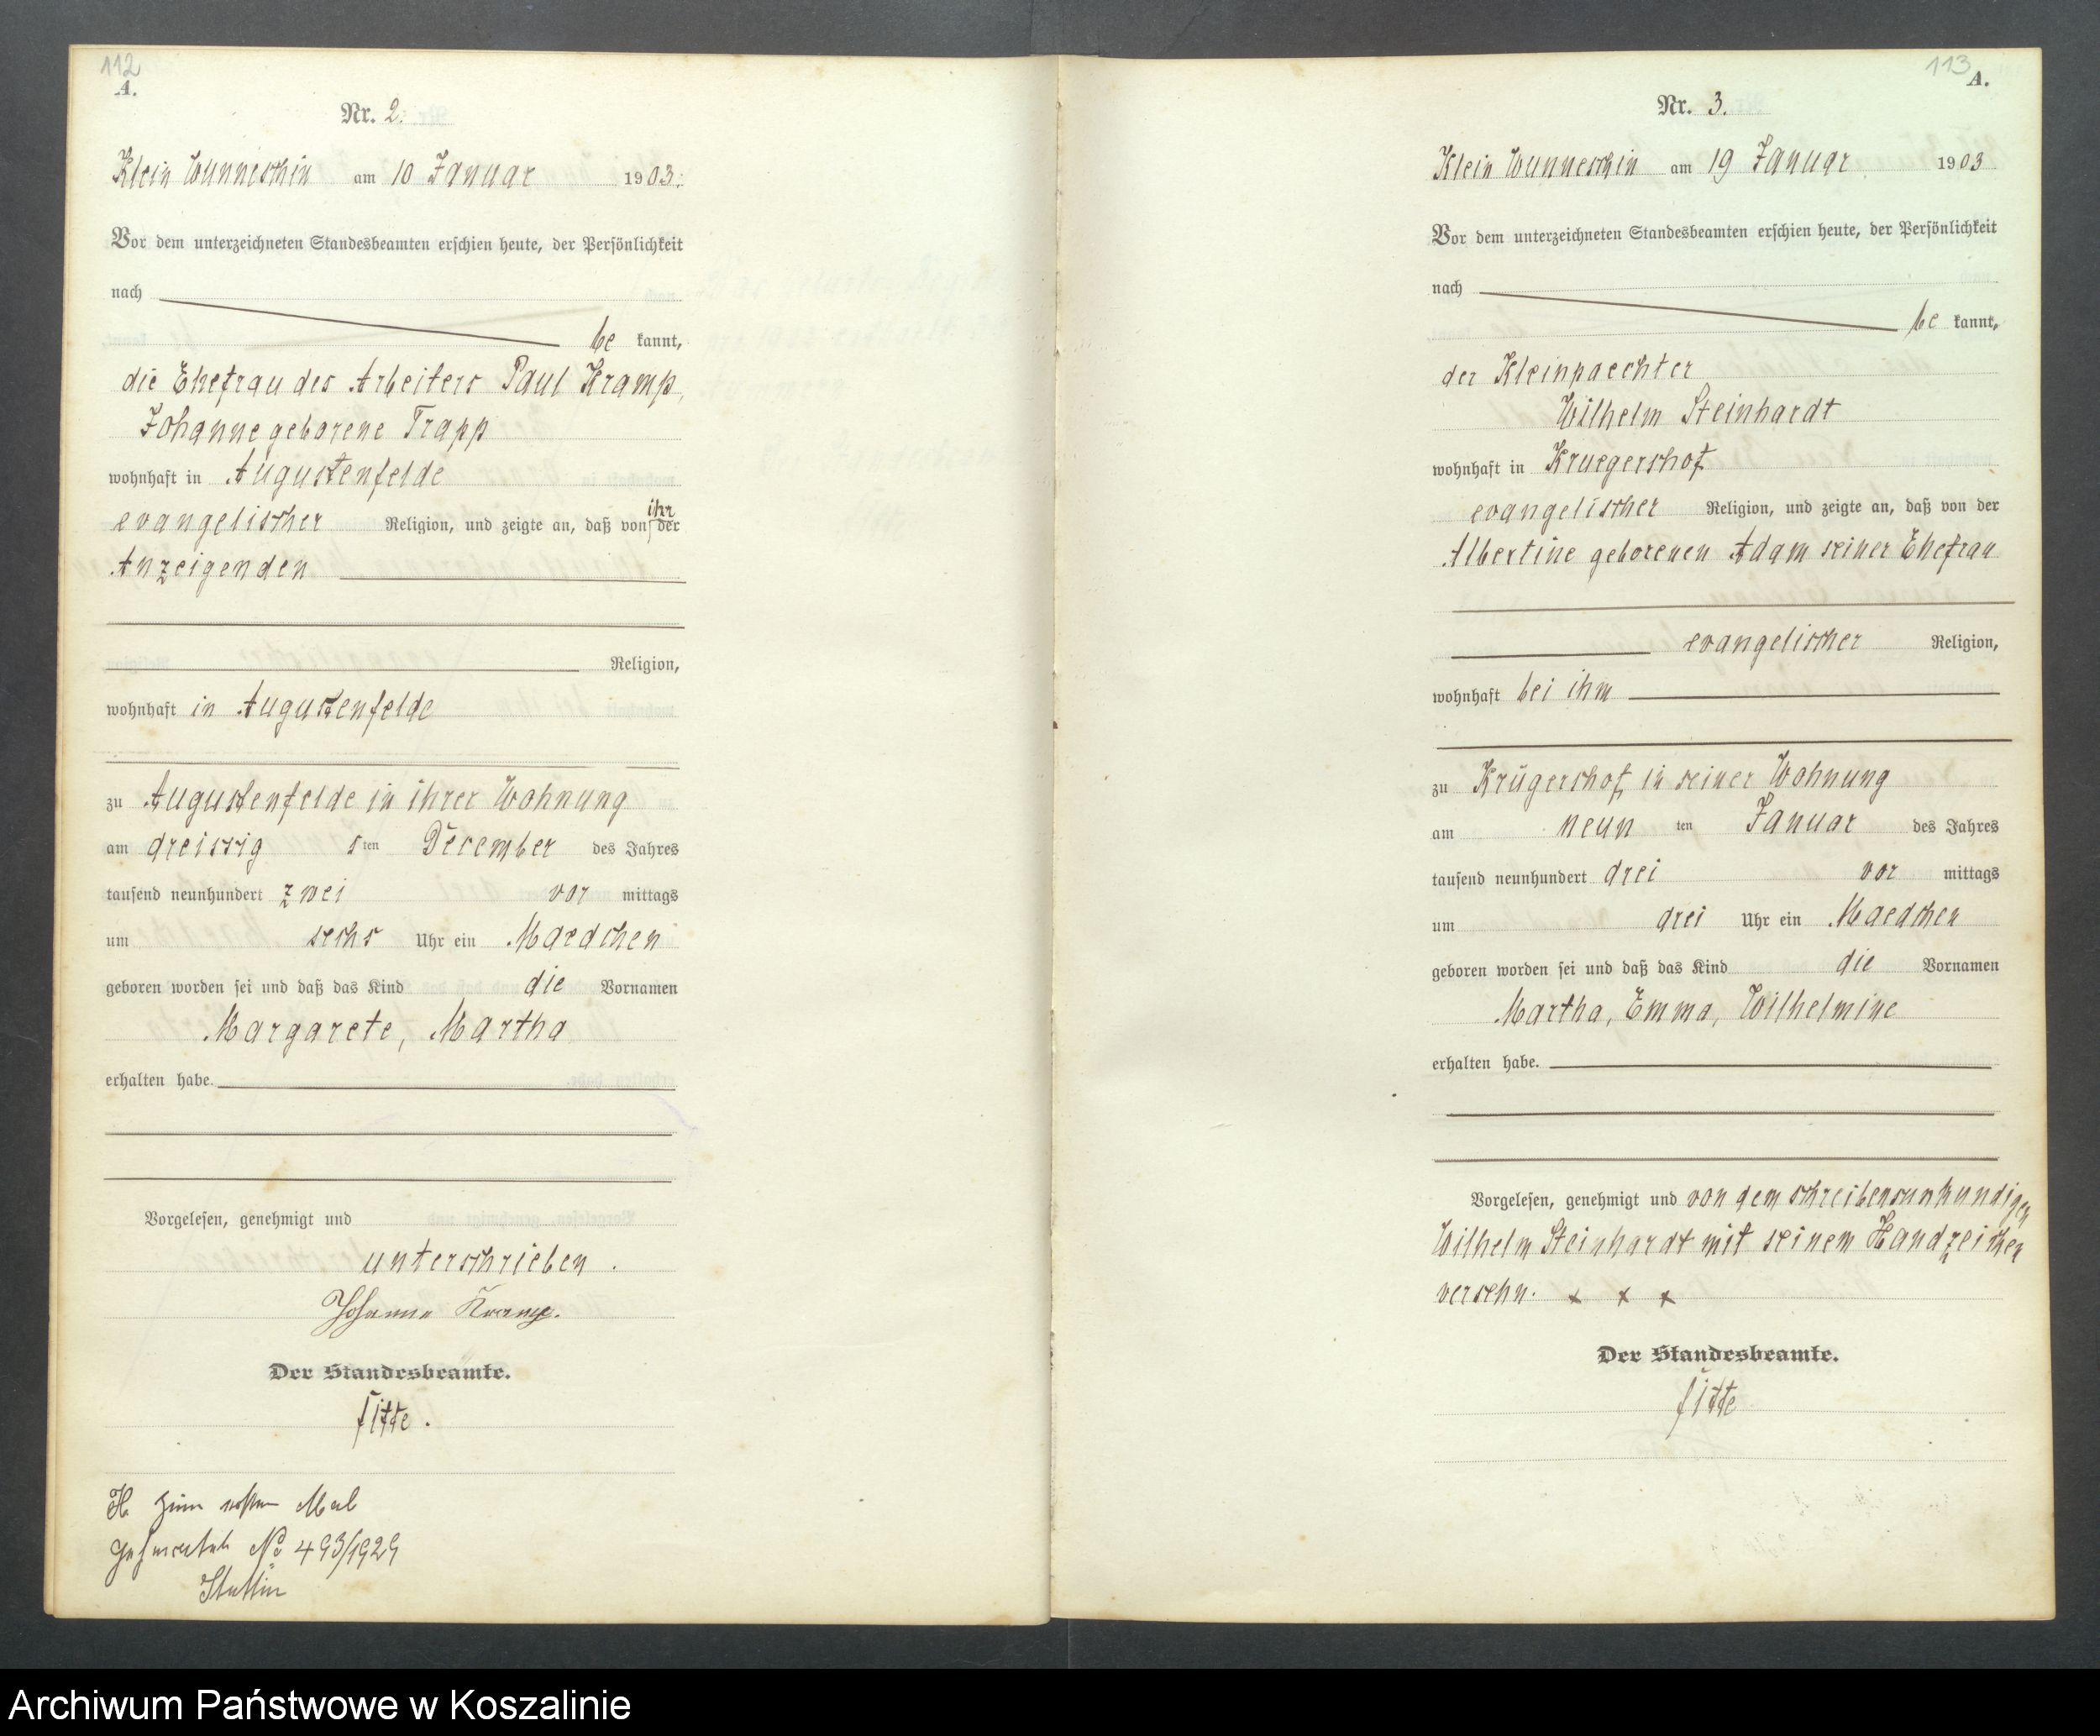 112
A.
Nr. 2.
Klein Wunneschin am 10 Januar 1903.
Vor dem unterzeichneten Standesbeamten erschien heute, der Persönlichkeit
nach
be kannt,
die Ehefrau des Arbeiters Paul Kramp,
Johanne geborene Trapp
wohnhaft in Augustenfelde
evangelischer Religion, und zeigte an, daß von ihr der
Anzeigenden
Religion,
wohnhaft in Augustenfelde
zu Augustenfelde in ihrer Wohnung
am dreissig sten December des Jahres
tausend neunhundert zwei vor mittags
um sechs Uhr ein Maedchen
geboren worden sei und daß das Kind die Vornamen
Margarete, Martha
erhalten habe.
Vorgelesen, genehmigt und
unterschrieben.
Johanne Kramp.
Der Standesbeamte.
Fitte.
H. zum ersten Mal
geheiratet No 493/1929
Stettin
113
A.
Nr. 3.
Klein Wunneschin am 19 Januar 1903
Vor dem unterzeichneten Standesbeamten erschien heute, der Persönlichkeit
nach
be kannt,
der Kleinpaechter
Wilhelm Steinhardt
wohnhaft in Kruegershof
evangelischer Religion, und zeigte an, daß von der
Albertine geborenen Adam seiner Ehefrau
evangelischer Religion,
wohnhaft bei ihm
zu Krügershof, in seiner Wohnung
am neun ten Januar des Jahres
tausend neunhundert drei vor mittags
um drei Uhr ein Maedchen
geboren worden sei und daß das Kind die Vornamen
Martha, Emma, Wilhelmine
erhalten habe.
Vorgelesen, genehmigt und von dem schreibensunkundigen
Wilhelm Steinhardt mit seinem Handzeichen
versehn. x x x
Der Standesbeamte.
Fitte
Archiwum Państwowe w Koszalinie